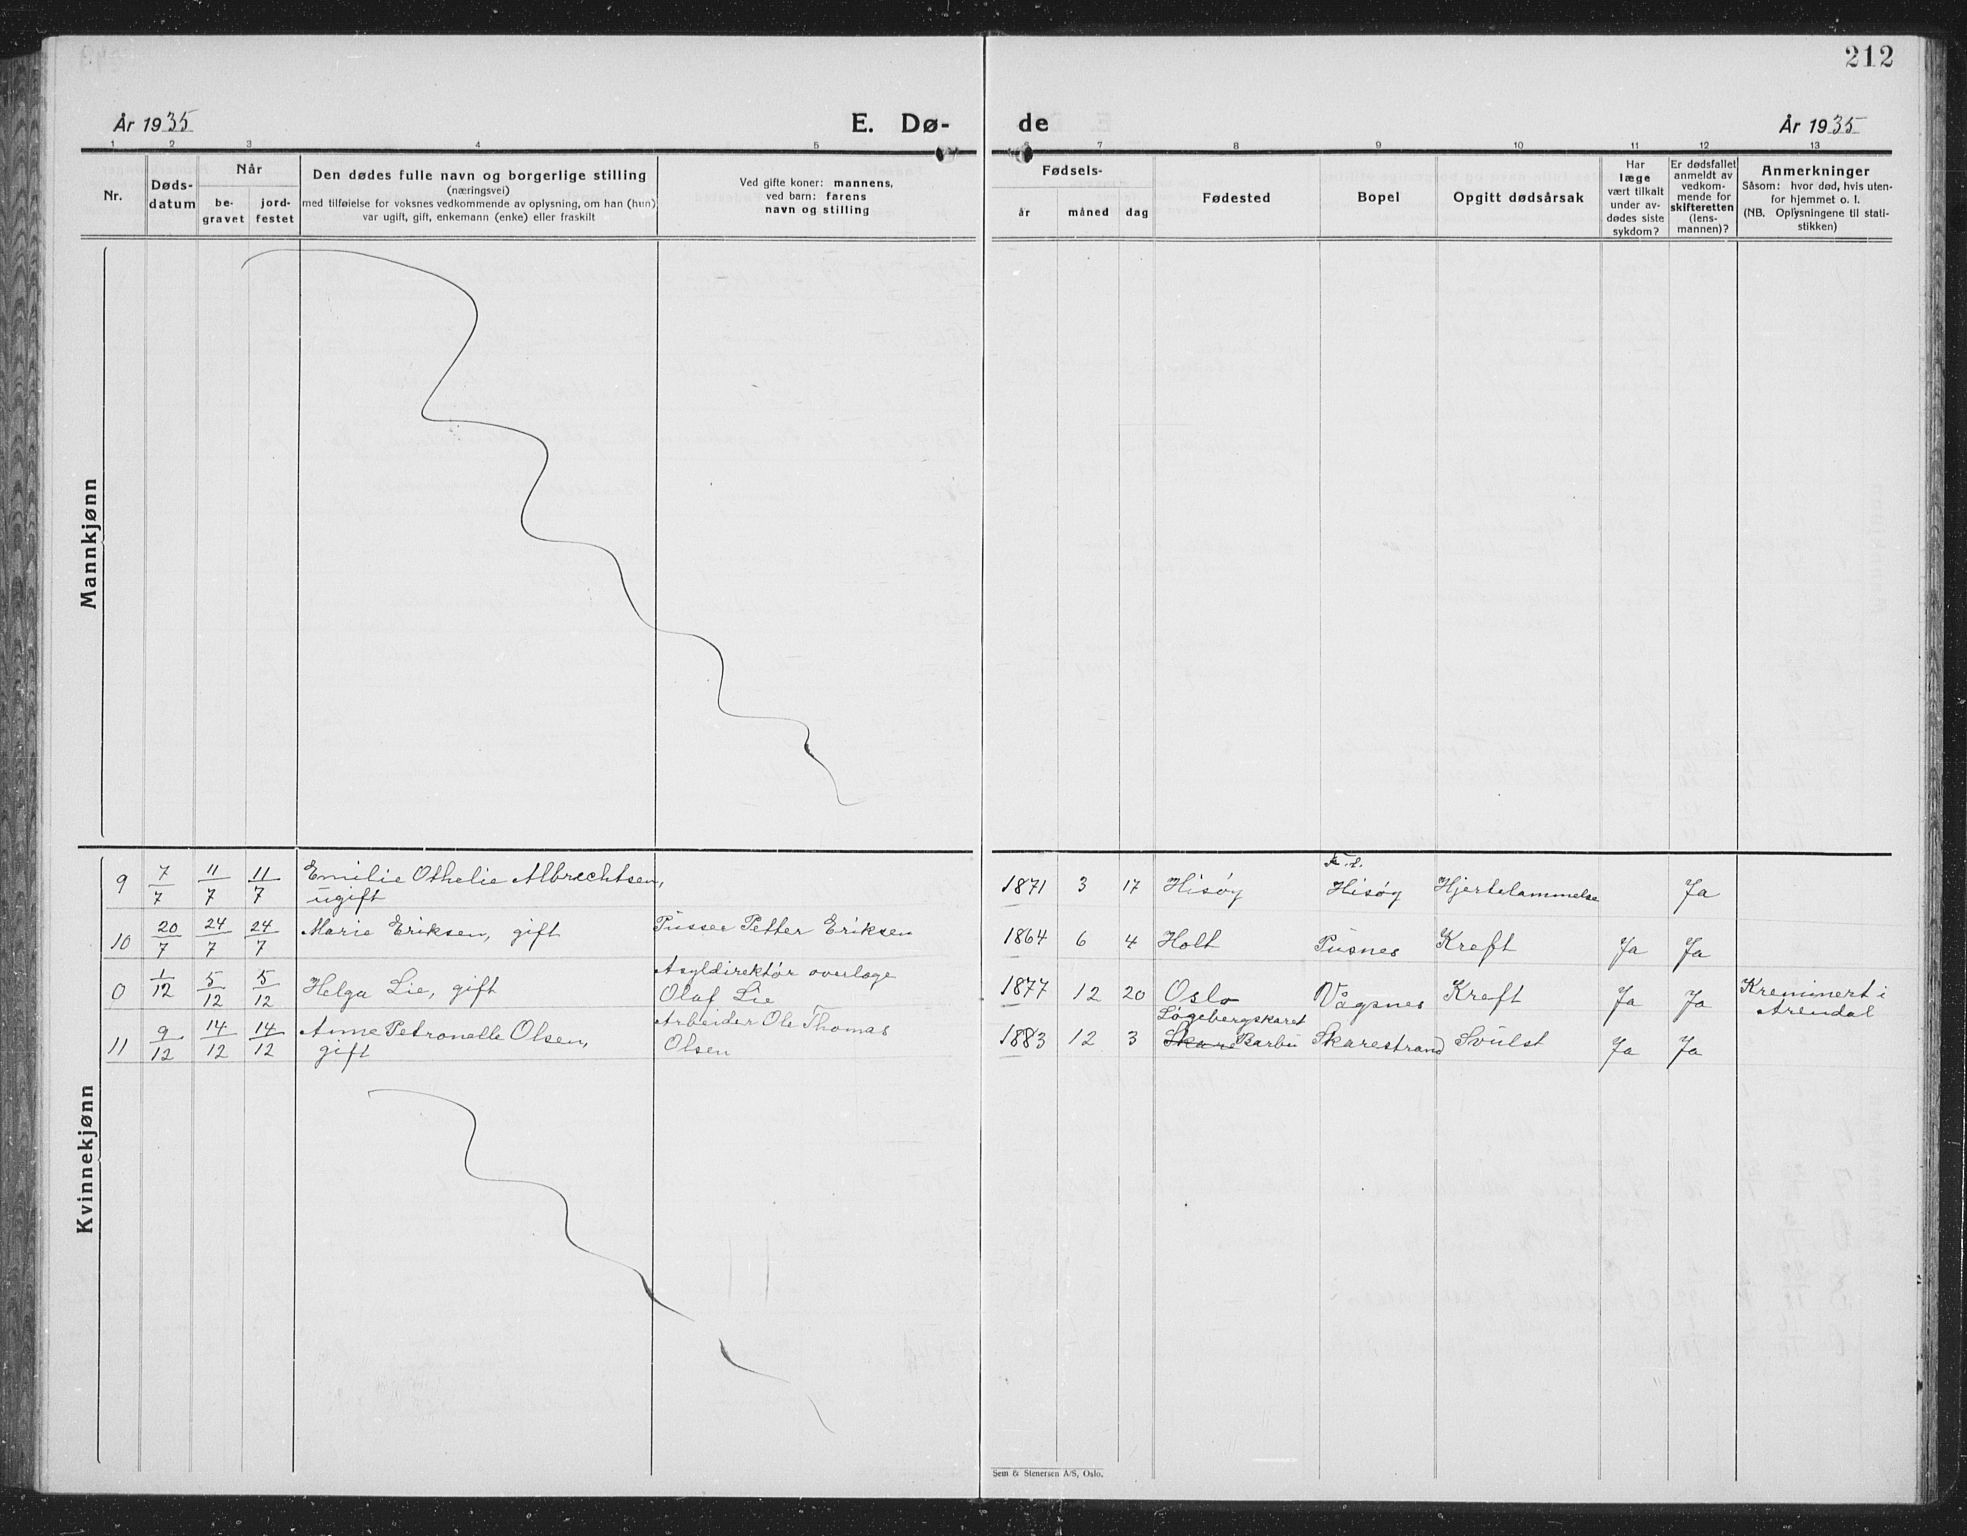 212
År 1935 E. Dø- de År 1935
1 2 3 4 5 6 7 8 9 10 11 12 13
Nr.
Døds-
datum
Når
be-
gravet
jord-
festet
Den dødes fulle navn og borgerlige stilling
(næringsvei)
med tilføielse for voksnes vedkommende av oplysning, om han (hun)
var ugift, gift, enkemann (enke) eller fraskilt
Ved gifte koner: mannens,
ved barn: farens
navn og stilling
Fødsels-
år måned dag
Fødested
Bopel
Opgitt dødsårsak
Har
læge
vært tilkalt
under av-
dødes siste
sykdom?
Er dødsfallet
anmeldt av
vedkom-
mende for
skifteretten
(lens-
mannen)?
Anmerkninger
Såsom: hvor død, hvis uten-
for hjemmet o. l.
(NB. Oplysningene til stati-
stikken)
Mannkjønn
Kvinnekjønn
9 7/7 11/7 11/7 Emilie Othelie Albrechtsen, 1871 3 17 Hisøy Hisøy Hjertelammelse Ja
ugift
10 20/7 24/7 24/7 Marie Eriksen, gift Pusser Petter Eriksen 1864 6 4 Holt Pusnes Kreft Ja Ja
0 1/12 5/12 5/12 Helga Lie, gift Asyldirektør overlæge 1877 12 20 Oslo Vågsnes Kreft Ja Ja Kremmert i
Olaf Lie Arendal
11 9/12 14/12 14/12 Anne Petronelle Olsen, Arbeider Ole Thomas 1883 12 3 Løgebergskaret
gift Olsen Skare Barbu Skarestrand Svulst Ja Ja
Sem & Stenersen A/S, Oslo.